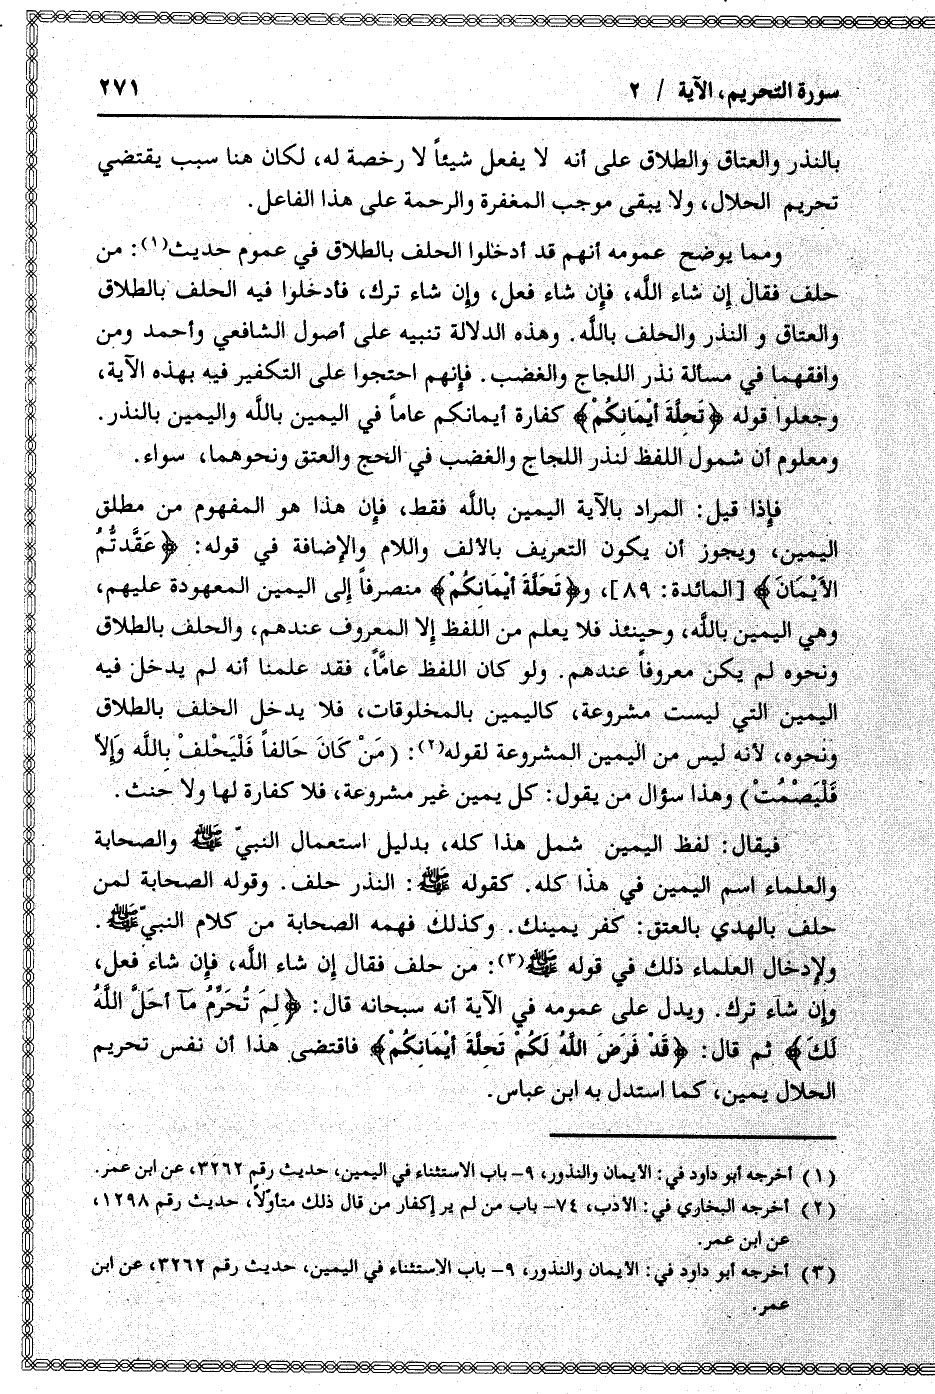 سورة التحريم، الآية / ٢
٢٧١
بالنذر والعتاق والطلاق على أنه لا يفعل شيئاً لا رخصة له، لكان هنا سبب يقتضي
تحريم الحلال، ولا يبقى موجب المغفرة والرحمة على هذا الفاعل.
ومما يوضح عمومه أنهم قد أدخلوا الحلف بالطلاق في عموم حديث(١): من
حلف فقال إن شاء اللَّه، فإن شاء فعل، وإن شاء ترك، فأدخلوا فيه الحلف بالطلاق
والعتاق و النذر والحلف باللَّه. وهذه الدلالة تنبيه على أصول الشافعي وأحمد ومن
وافقهما في مسألة نذر اللجاج والغضب. فإنهم احتجوا على التكفير فيه بهذه الآية،
وجعلوا قوله ﴿تَحِلَّةَ أَيْمَانِكُمْ﴾ كفارة أيمانكم عاماً في اليمين باللَّه واليمين بالنذر.
ومعلوم أن شمول اللفظ لنذر اللجاج والغضب في الحج والعتق ونحوهما، سواء.
فإذا قيل: المراد بالآية اليمين باللَّه فقط، فإن هذا هو المفهوم من مطلق
اليمين، ويجوز أن يكون التعريف بالألف واللام والإضافة في قوله: ﴿عَقَّدتُّمُ
الأَيْمَانَ﴾ [المائدة: ٨٩]، و﴿تَحِلَّةَ أَيْمَانِكُمْ﴾ منصرفاً إلى اليمين المعهودة عليهم،
وهي اليمين باللَّه، وحينئذ فلا يعلم من اللفظ إلا المعروف عندهم، والحلف بالطلاق
ونحوه لم يكن معروفاً عندهم. ولو كان اللفظ عامًّا، فقد علمنا أنه لم يدخل فيه
اليمين التي ليست مشروعة، كاليمين بالمخلوقات، فلا يدخل الحلف بالطلاق
ونحوه، لأنه ليس من اليمين المشروعة لقوله(٢): (مَنْ كَانَ حَالفاً فَلْيَحْلفْ بِاللَّه وَإِلاَّ
فَلْيَصْمُتْ) وهذا سؤال من يقول: كل يمين غير مشروعة، فلا كفارة لها ولا حنث.
فيقال: لفظ اليمين شمل هذا كله، بدليل استعمال النبيّ ﷺ والصحابة
والعلماء اسم اليمين في هذا كله. كقوله ﷺ: النذر حلف. وقوله الصحابة لمن
حلف بالهدي بالعتق: كفر يمينك. وكذلك فهمه الصحابة من كلام النبيّ ﷺ.
ولإدخال العلماء ذلك في قوله ﷺ(٣): من حلف فقال إن شاء اللَّه، فإن شاء فعل،
وإن شاء ترك. ويدل على عمومه في الآية أنه سبحانه قال: ﴿لِمَ تُحَرِّمُ مَآ أَحَلَّ اللَّهُ
لَكَ﴾ ثم قال: ﴿قَدْ فَرَضَ اللَّهُ لَكُمْ تَحِلَّةَ أَيْمَانِكُمْ﴾ فاقتضى هذا أن نفس تحريم
الحلال يمين، كما استدل به ابن عباس.
(١) أخرجه أبو داود في: الأيمان والنذور، ٩– باب الاستثناء في اليمين، حديث رقم ٣٢٦٢، عن ابن عمر.
(٢) أخرجه البخاري في: الأدب، ٧٤– باب من لم ير إكفار من قال ذلك متأوّلاً، حديث رقم ١٢٩٨،
عن ابن عمر.
(٣) أخرجه أبو داود في: الأيمان والنذور، ٩– باب الاستثناء في اليمين، حديث رقم ٣٢٦٢، عن ابن
عمر.